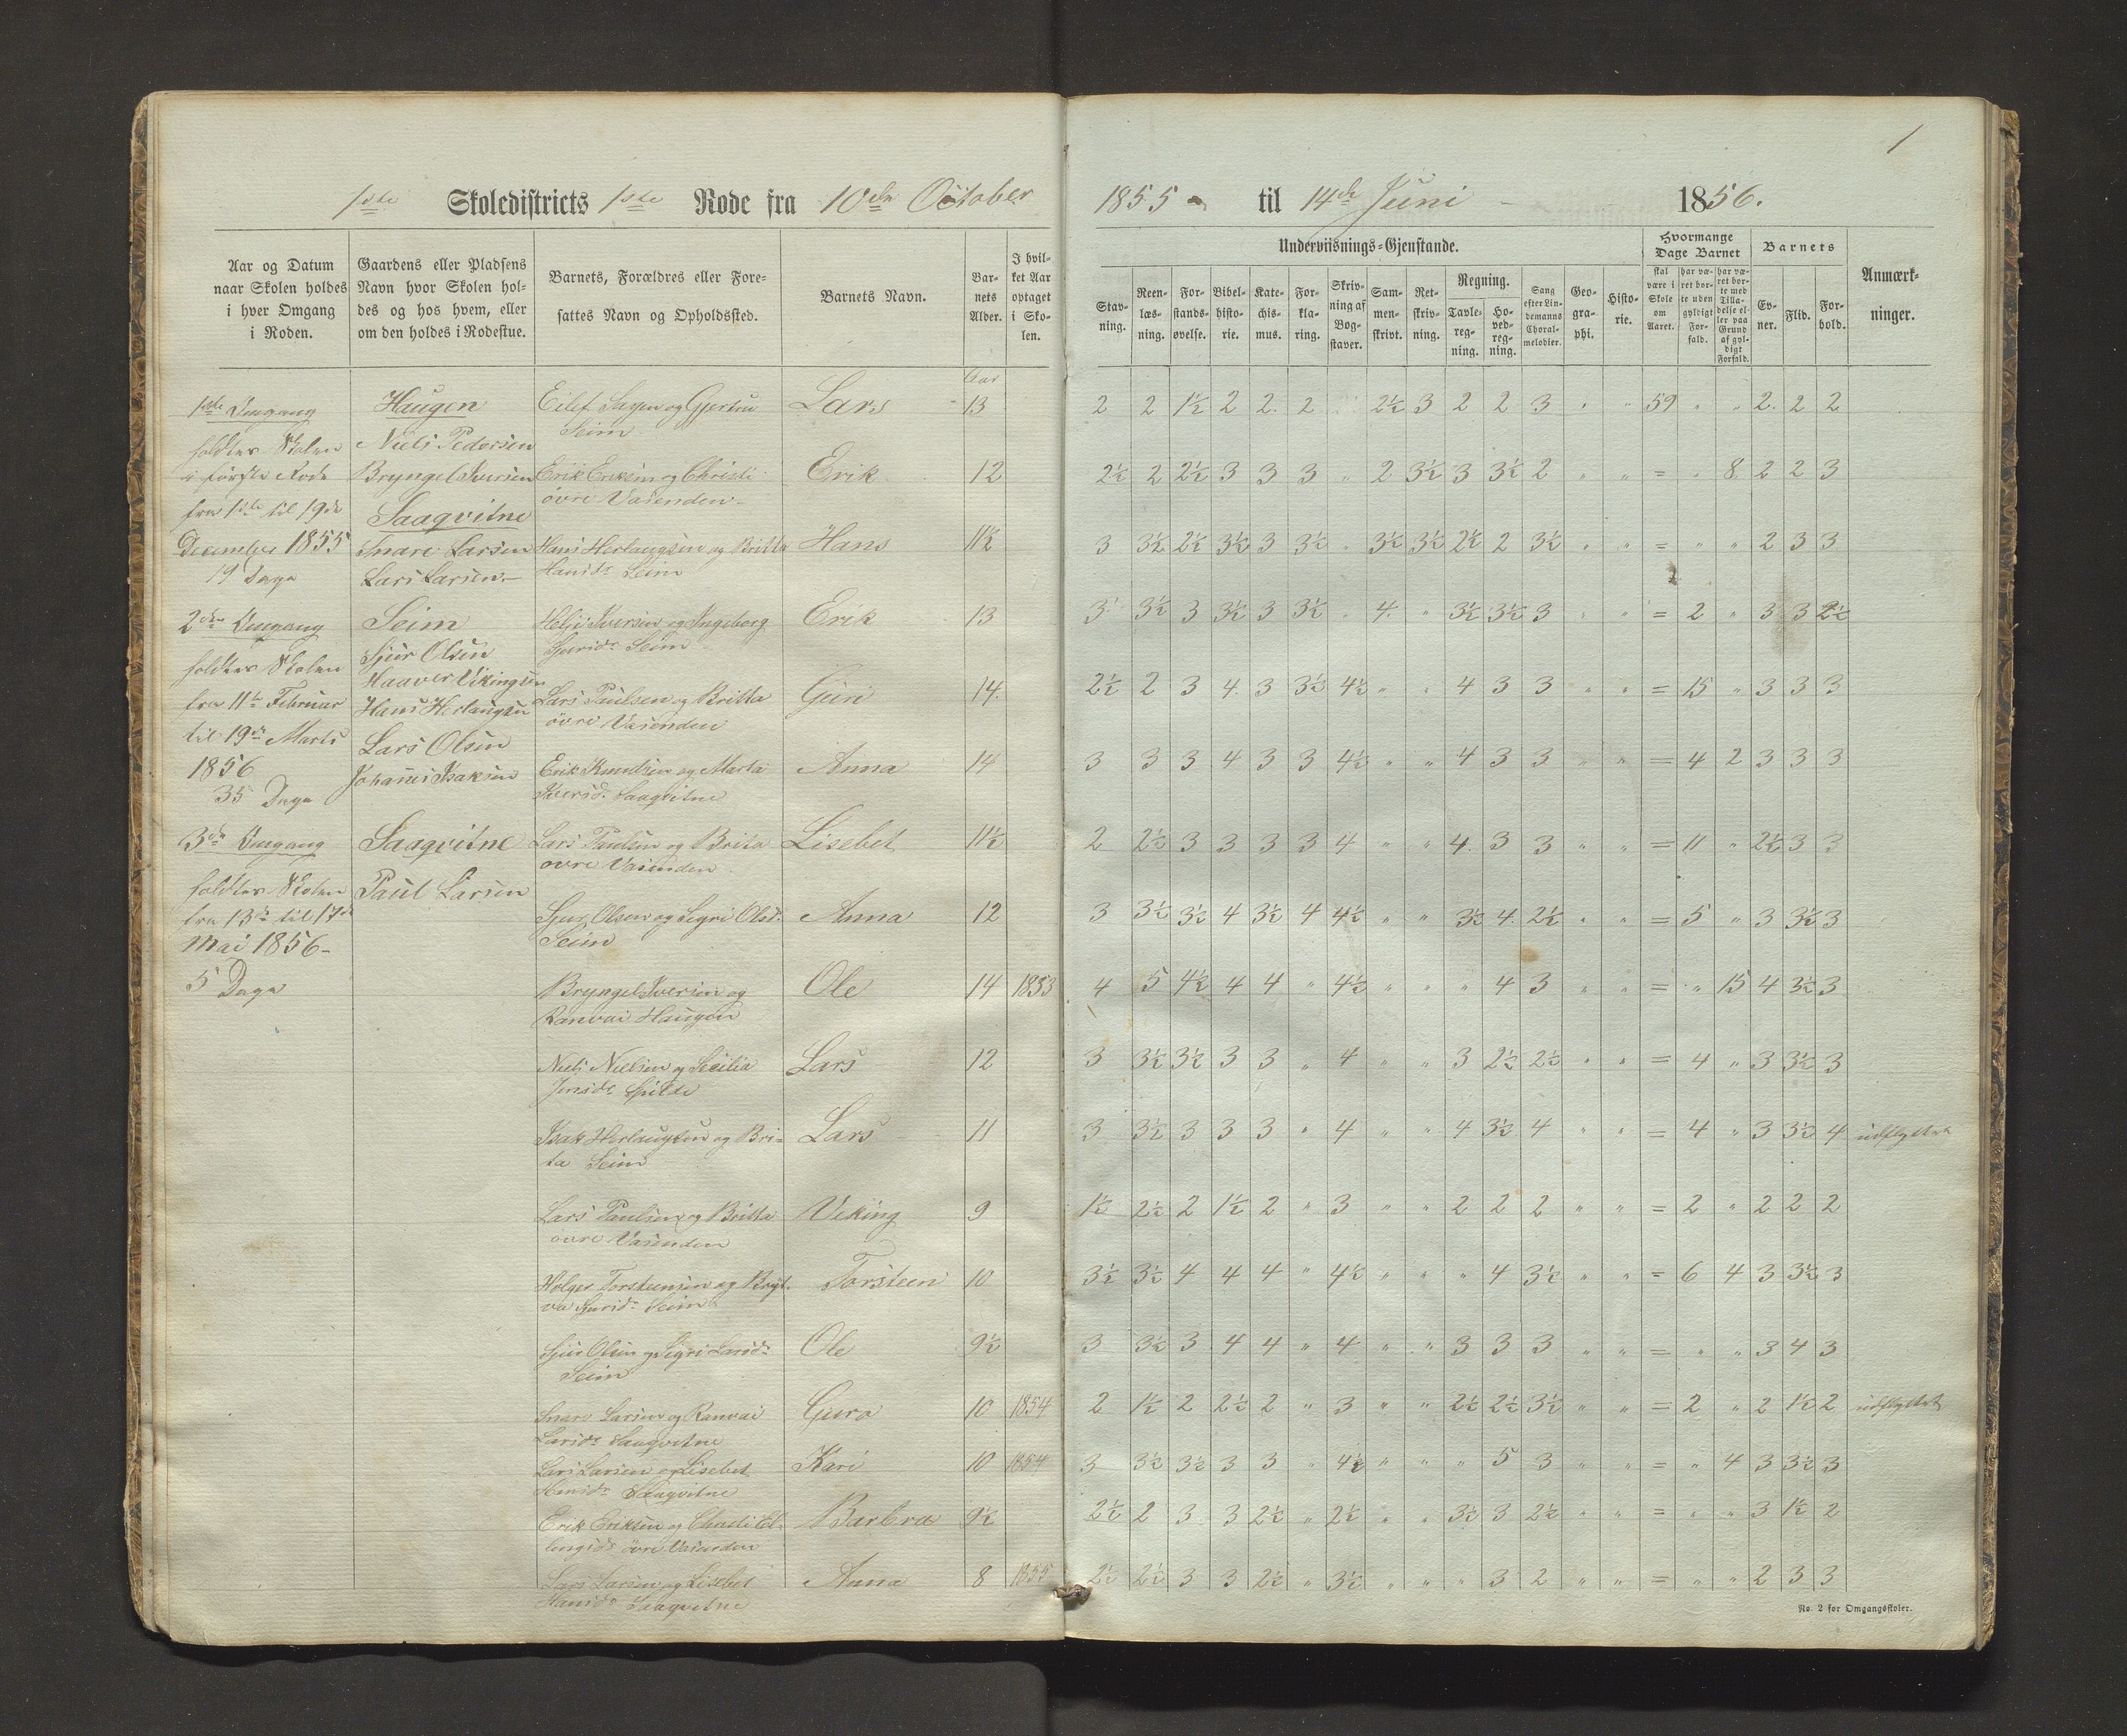 1
1ste Skoledistricts 1ste Rode fra 10de October 1855 til 14de Juni 1856.
Aar og Datum naar Skolen holdes i hver Omgang i Roden.
Gaardens eller Pladsens Navn hvor Skolen holdes og hos hvem, eller om den holdes i Rodestue.
Barnets, Forældres eller Foresattes Navn og Opholdssted.
Barnets Navn.
Barnets Alder.
I hvilket Aar optaget i Skolen.
Underviisnings-Gjenstande.
Stavning.
Reenlæsning.
Forstandsøvelse.
Bibelhistorie.
Katechismus.
Forklaring.
Skrivning af Bogstaver.
Sammenskrivt.
Retskrivning.
Regning.
Tavleregning.
Hovedregning.
Sang efter Lindemanns Choralmelodier.
Geographi.
Historie.
Hvormange Dage Barnet
skal være i Skole om Aaret.
har været borte uden gyldigt Forfald.
har været borte med Tilladelse eller paa Grund af gyldigt Forfald.
Barnets
Evner.
Flid.
Forhold.
Anmærkninger.
1ste Omgang
holdtes Skolen
i første Rode
fra 1ste til 19de
December 1855
19 Dage
2den Omgang
holdtes Skolen
fra 11te Februar
til 19de Marts
1856
35 Dage
3die Omgang
holdtes Skolen
fra 13de til 17de
Mai 1856-
5 Dage
Haugen
Niels Pedersen
Bryngel Iversen
Saaqvitne
Snare Larsen
Lars Larsen
Seim
Sjur Olsen
Haaver Vikingsen
Hans Herlaugsen
Lars Olsen
Johannes Isaksen
Saaqvitne
Paul Larsen
Aar
Eilef Sagen og Gjertru Lars 13 2 2 1½ 2 2 2 2½ 3 2 2 3 " " 59 " " 2 2 2
Seim
Erik Eriksen og Christi Erik 12 2½ 2 2½ 3 3 3 " 2 3½ 3 3½ 2 " " = " 8 2 2 3
øvre Vasenden
Hans Herlaugsen og Britta Hans 11½ 3 3½ 2½ 3½ 3 3½ " 3½ 3½ 2½ 2 3½ " " = " " 2 3 3
Hansdr Seim
Helje Iversen og Ingeborg Erik 13 3½ 3½ 3 3½ 3 3½ " 4 " 3½ 3½ 3 " " = 2 " 3 3 2½
Sjursdr Seim
Lars Paulsen og Britta Guri 14 2½ 2 3 4 3 3½ 4½ " " 4 3 3 " " = 15 " 3 3 3
øvre Vasenden
Erik Knudsen og Marta Anna 14 3 3 3 4 3 3 4½ " " 4 3 3 " " = 4 2 3 3 3
Iversd. Saaqvitne
Lars Paulsen og Brita Lisebet 11½ 2 2½ 3 3 3 3 4 " " 4 3 3 " " = 11 " 2½ 3 3
øvre Vasenden
Sjur Olsen og Sigri Olsd. Anna 12 3 3½ 3½ 4 3½ 4 4½ " " 3½ 4 2½ " " = 5 " 3 3½ 3
Seim
Bryngel Iversen og Ole 14 1853 4 5 4½ 4 4 " 4½ " " " 4 3 " " = " 15 4 3½ 3
Ranvai Haugen
Niels Nielsen og Secilia Lars 12 3 3½ 3½ 3 3 " 4 " " 3 2½ 2½ " " = 4 " 3 3½ 3
Jensdr Spilde
Isak Herlaugsen og Bri- Lars 11 3 3½ 3 3 3 " 4 " " 4 3½ 4 " " = 4 " 3 3½ 4 udflyttet
ta Seim
Lars Paulsen og Britta Viking 9 1½ 2½ 2 1½ 2 " 3 " " 2 2 2 " " = 2 " 2 2 2
øvre Vasenden
Holger Torsteensen og Torsteen 10 3½ 3½ 4 4 4 " 4½ " " " 4 3½ " " = 6 4 3 3½ 3
Sjursdr Seim
Sjur Olsen og Sigri Larsdr Ole 9½ 3 3½ 3 4 4 " 4 " " 3 3 3 " " = " " 3 4 3
Seim
Snare Larsen og Ranvai Guro 10 1854 2 1½ 2 2½ 2 " 3 " " 2½ 2½ 3½ " " = 2 " 2 1½ 2 udflyttet
Larsdr Saaqvitne
Lars Larsen og Lisebet Kari 10 1854 3 3½ 3½ 3 3 " 4½ " " " 5 3 " " = " 4 3 3½ 3
Hansdr Saaqvitne
Erik Eriksen og Christi El- Barbra 9½ 2½ 2 3 3 2½ " 2½ " " 3½ 3 2½ " " = " " 3 1½ 2
lingsdr øvre Vasenden
Lars Larsen og Lisebet Anna 8 1855 2½ 2½ 3 3 2½ " 3½ " " " 3 2 " " = " " 2 3 3
Hansdr Saaqvitne
No. 2 for Omgangsskoler.